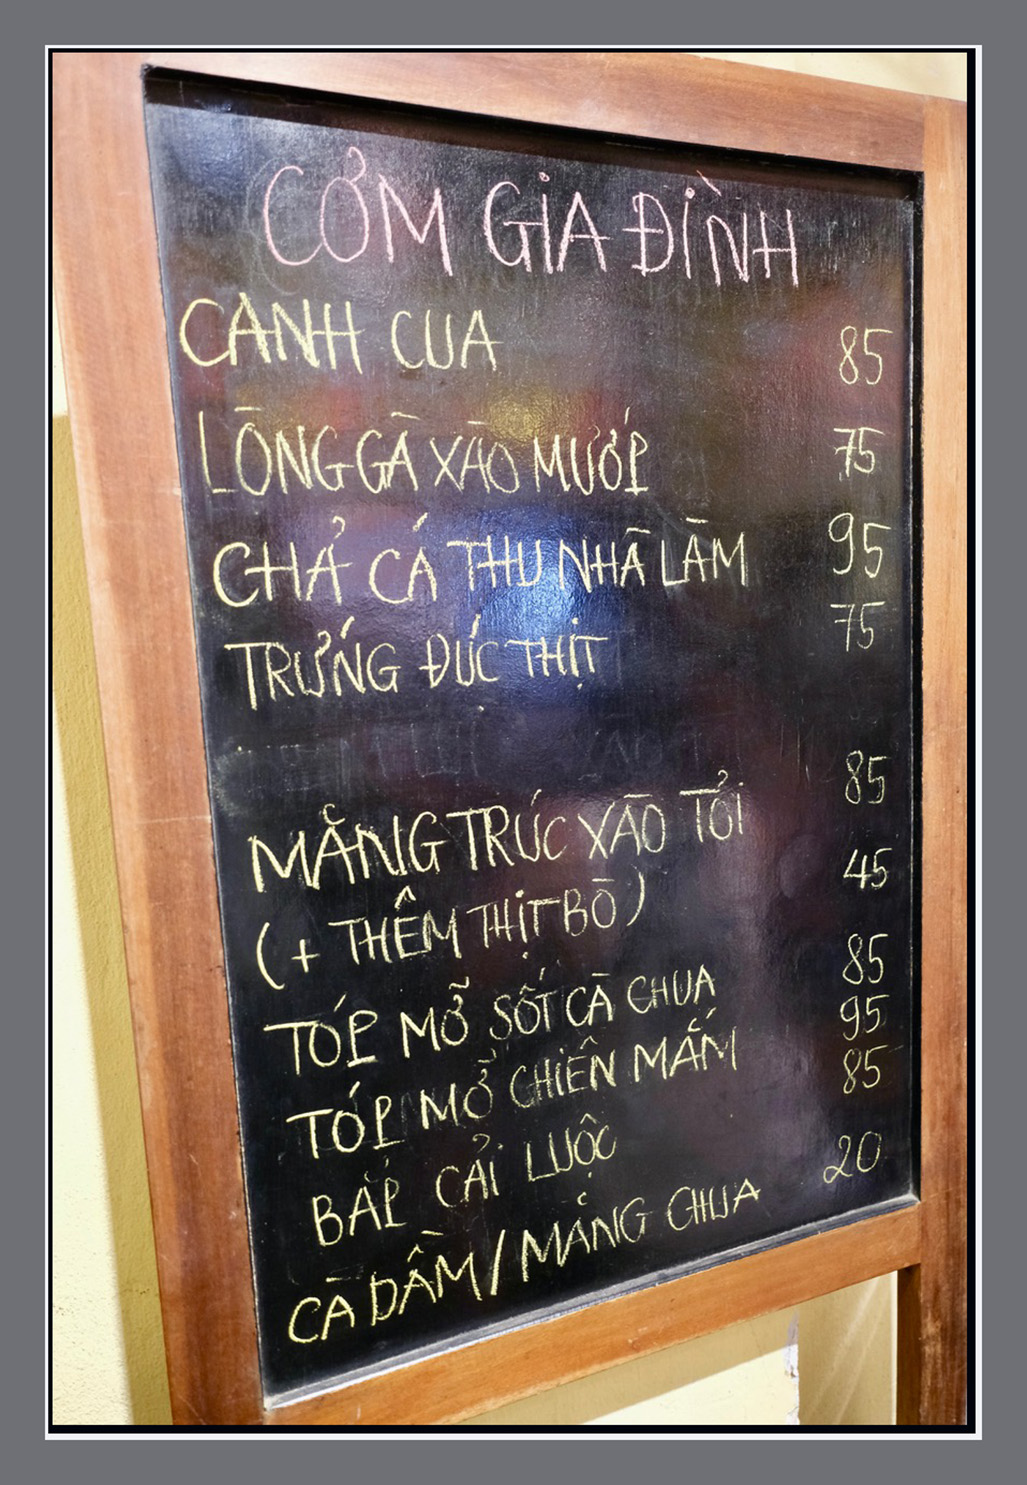 CƠM GIA ĐÌNH
CANH CUA 85
LÒNG GÀ XÀO MƯỚP 75
CHẢ CÁ THU NHÀ LÀM 95
TRỨNG ĐÚC THỊT 75
MĂNG TRÚC XÀO TỎI 85
(+ THÊM THỊT BÒ) 45
TÓP MỠ SỐT CÀ CHUA 85
TÓP MỠ CHIÊN MẮM 95
BẮP CẢI LUỘC 85
CÀ DẦM/MĂNG CHUA 20